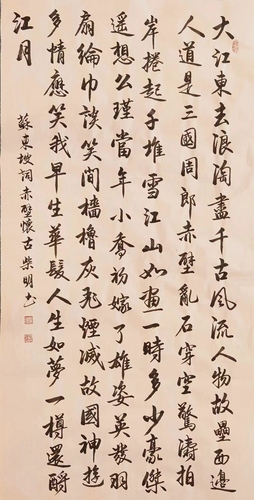 大江東去浪淘盡千古風流人物故壘西邊
人道是三國周郎赤壁亂石穿空驚濤拍
岸捲起千堆雪江山如畫一時多少豪傑
遥想公瑾當年小喬初嫁了雄姿英發羽
扇綸巾談笑間檣櫓灰飛煙滅故國神遊
多情應笑我早生華髮人生如夢一樽還酹
江月
蘇東坡詞赤壁懷古柴明书